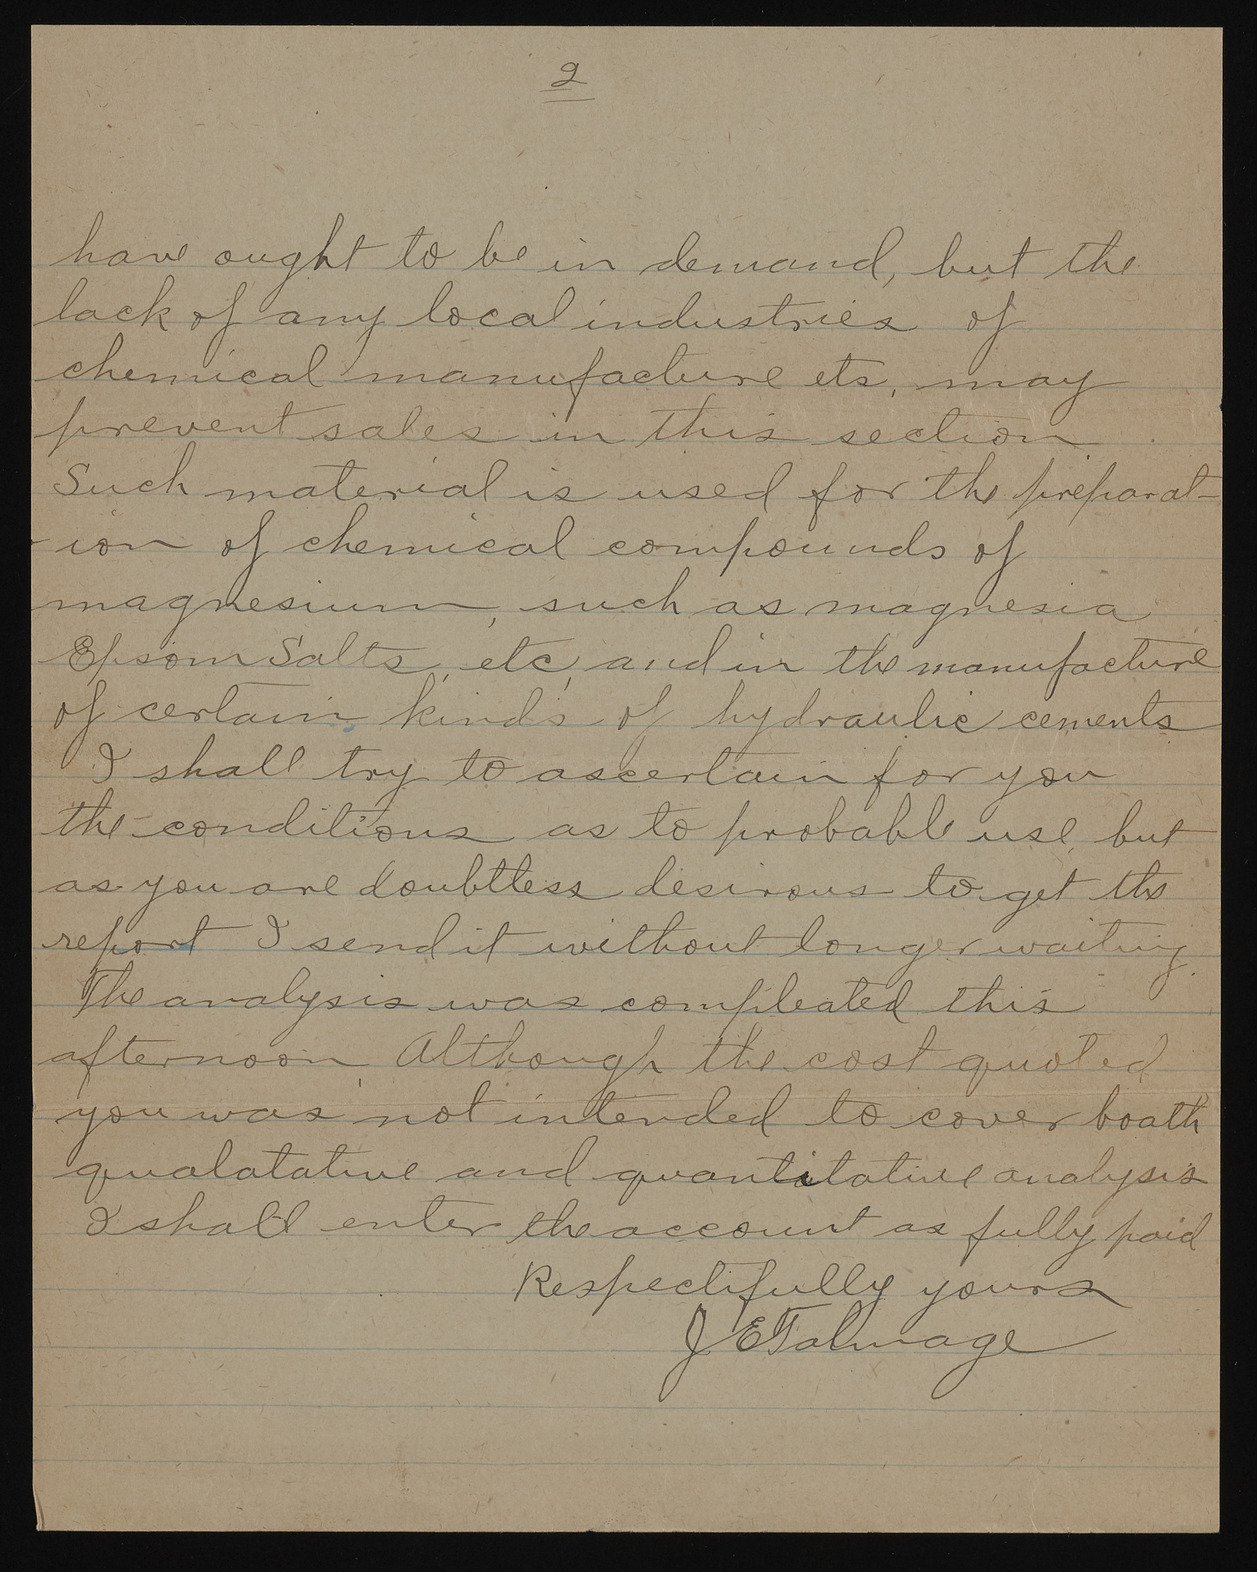 2
have ought to be in demand, but the
lack of any local industries of
chemical manufacture etc, may
prevent sales in this section.
Such material is used for the preparat-
-ion of chemical compounds of
magnesium, such as magnesia
Epsom Salts, etc, and in the manufacture
of certain kinds of hydraulic cements
I shall try to ascertain for you
the conditions as to probable use, but
as you are doubtless desirous to get the
report I send it without longer waiting.
The analysis was compleated this
afternoon. Although the cost quoted
you was not intended to cover boath
qualatative and quantitative analysis
I shall enter the account as fully paid
Respectifully yours
J E Talmage